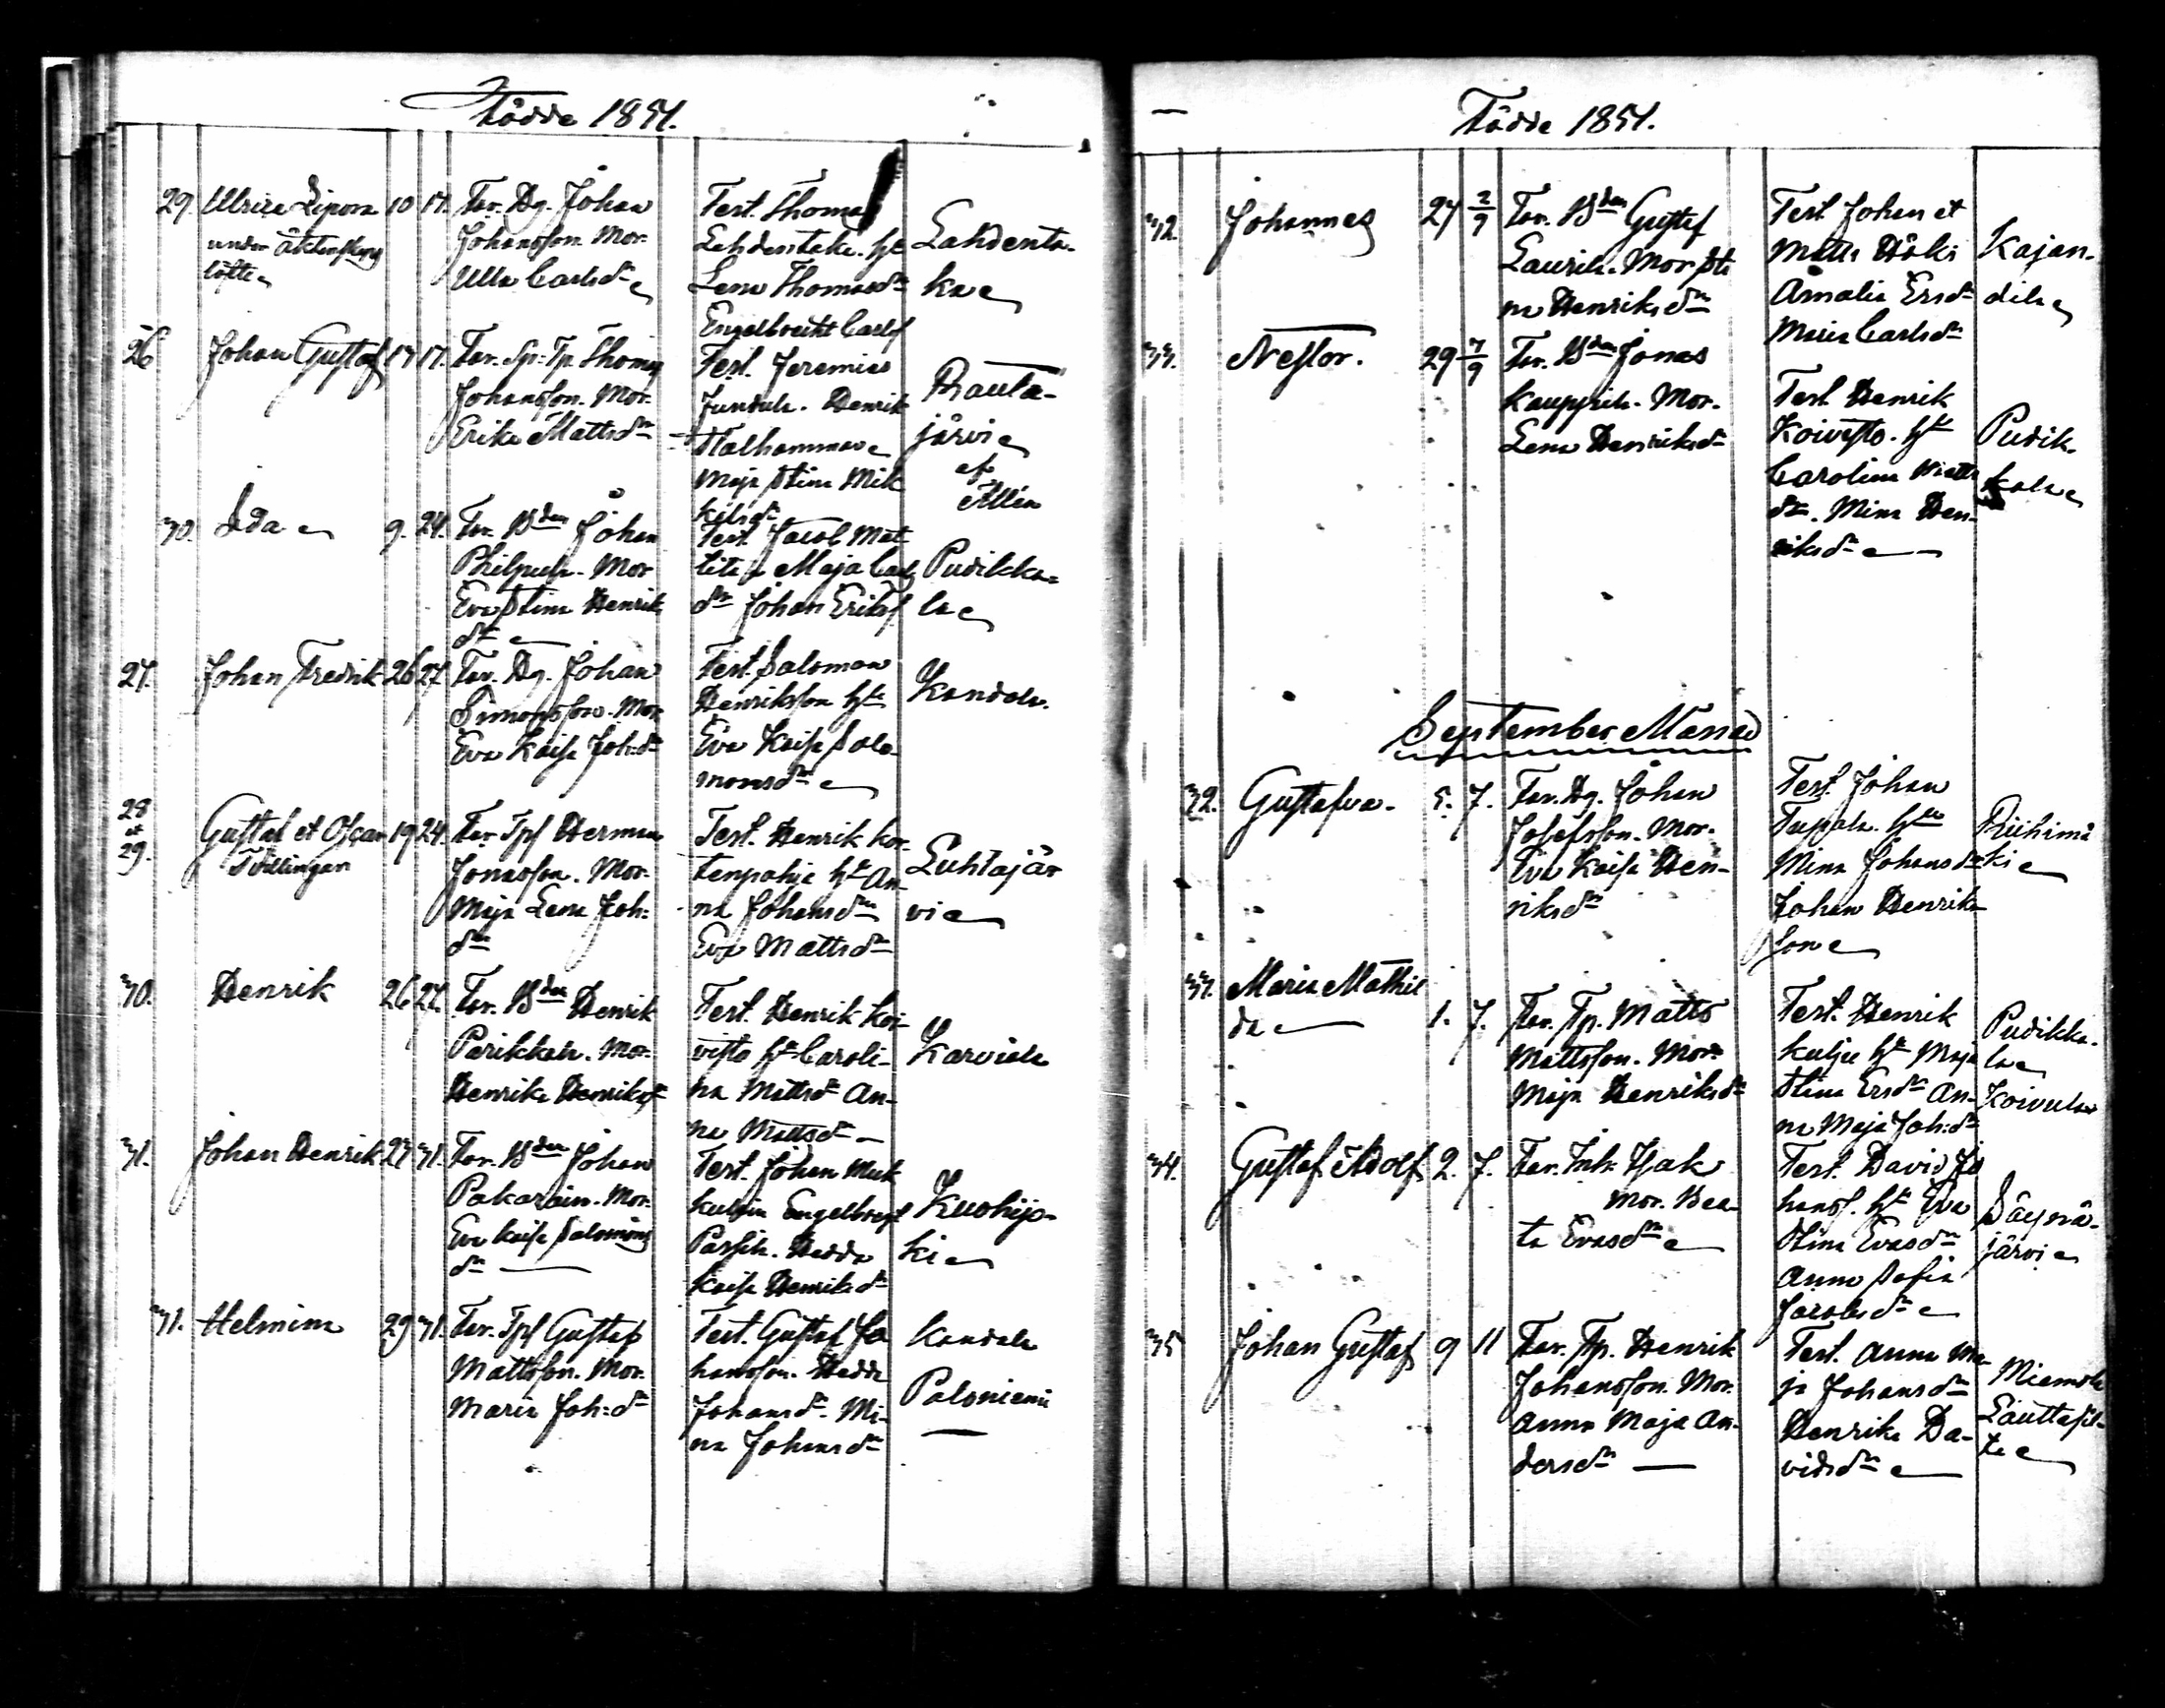 Födde 1851.
29. Ulrica Sipora 10 17. Far. Dg. Johan Johansson. Mor. Ulla Carlsdr
under äktenskaps löfte
Test. Thomas Lahdentaka. hu Lena Thomasdr Engelbrecht Carlss
Lahdenta-
ka
26 Johan Gustaf 17. Far. Sp. Tp. Thomas
Johansson. Mor.
Erika Mattsdr
Test. Jeremias
Jundula. Henrik
Malhammar
Maja Stina Mik
kelsdr
Rauta-
järvi
30. Ida 9. 24. Far. Bden Johan
Philpula. Mor
Eva Stina Henriks
dr
Test. Jacob Mat
tila Maja Carls
dr Johan Erikss
Pudikka-
la
27. Johan Fredrik 26 27. Far. Dg. Johan
Simonsson. Mor
Eva Kaisa Joh:dr
Test. Salomon
Henriksson hu
Eva Kaisa Salo-
monsdr
Kandola.
28 et 29. Gustaf et Oscar 19 24. Far Tpf Herman
Tvillingar
Jonasson. Mor.
Maja Lena Joh:
dr
Test. Henrik Kor-
tenpohja hu An-
na Johansdr
Eva Mattsdr
Luhtajär
vi
30. Henrik 26 27. Far. Bden Henrik
Parikkala. Mor.
Henrika Henriksdr
Test. Henrik Koi-
visto hu Caroli-
na Mattsdr An-
na Mattsdr
Karviala
31. Johan Henrik 27 31. Far. Bden Johan
Pakarain. Mor.
Eva Kaisa Salomons
dr
Test. Johan Muk
kulain Engelbregt
Passila. Hedda
Kaisa Henriksdr
Kuohijo-
ki
31. Helmina 29 31. Far. Tpf Gustaf
Mattsson. Mor.
Maria Joh:dr
Test. Gustaf Jo
hansson. Hedda
Johansdr. Mi-
na Johansdr
Kandola
Paloniemi
Födde 1851.
32. Johannes 27 2/9 Far. Bden Gustaf
Laurila. Mor Sti
na Henriksdr
Test Johan et
Matts Håki
Amalia Ersdr
Maria Carlsdr
Kajan-
dila
33. Nestor. 29 7/9 Far. Bden Jonas
Kauppila. Mor.
Lena Henriksdr
Test Henrik
Koivisto. hu
Carolina Matts
dr. Mina Hen-
riksdr
Pudik-
kala
September Månad
32. Gustafva. 5. 7. Far. Dg. Johan
Josefsson. Mor.
Eva Kaisa Hen-
riksdr
Test. Johan
Tupala. hu
Mina Johansdr
Johan Henriks-
son
Riihimä
ki
33. Maria Mathil
da 1. 7. Far. Tp. Matts
Mattsson. Mor.
Maja Henriksdr
Test. Henrik
Kulju hu Maja
Stina Ersdr An-
na Maja Joh:dr
Pudikka-
la
Koivula
34. Gustaf Adolf 2. 7. Far. Inh. Isak
Mor. Bea-
ta Evasdr
Test. David Jo
hanss. hu Eva
Stina Evasdr
Anna Sofia
Jacobsdr
Säynä-
järvi
35 Johan Gustaf 9 11 Far. Tp. Henrik
Johansson. Mor.
Anna Maja An-
dersdr
Test. Anna Ma-
ja Johansdr
Henrika Da-
vidsdr
Miemola
Lauttasil-
ta